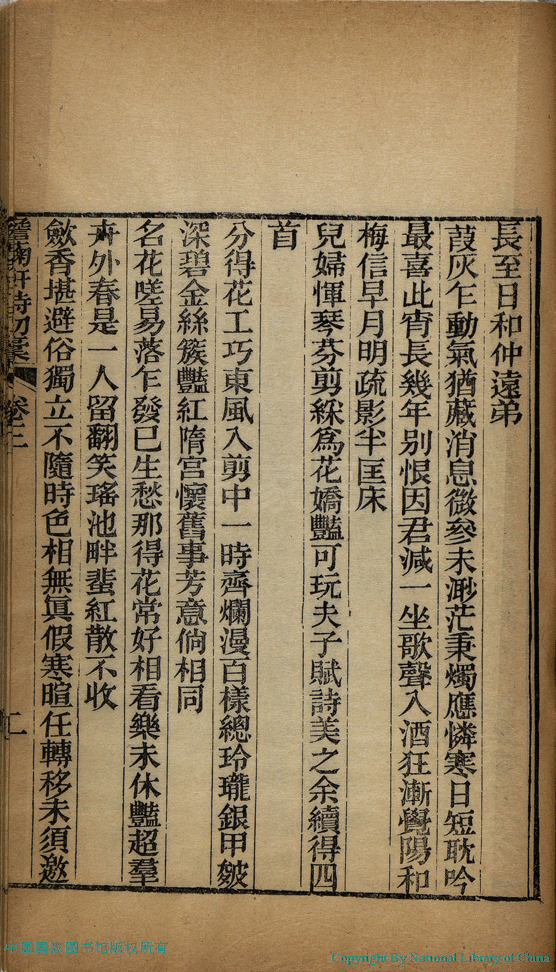 長至日和仲遠弟
葭灰乍動氣猶藏消息微參未渺茫秉燭應憐寒日短耽吟
最喜此宵長幾年別恨因君減一坐歌聲入酒狂漸覺陽和
梅信早月明疏影半匡床
兒婦惲琴芬剪綵爲花嬌豔可玩夫子賦詩美之余續得四
首
分得花工巧東風入剪中一時齊爛漫百樣總玲瓏銀甲皴
深碧金絲簇豔紅隋宮懷舊事芳意倘相同
名花嗟易落乍發已生愁那得花常好相看樂未休豔超羣
卉外春是一人留翻笑瑤池畔蜚紅散不收
斂香堪避俗獨立不隨時色相無眞假寒暄任轉移未須邀
澹鞠軒詩初稾 卷二 二
中国国家图书馆版权所有
Copyright By National Library of China